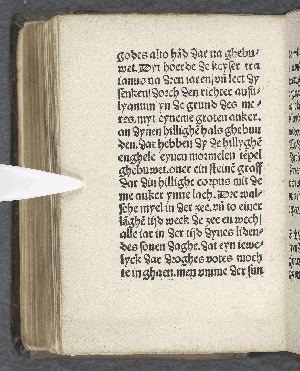 godes also hād dar na ghebu-
wet. Dyt hoerde de keyser tra
ianus na den iaren, vñ leet dy
senken dorch den richter aufi-
lyanum yn de grund des me-
res, myt eyneme groten anker,
an dynen hillighē hals ghebun
den, dar hebben dy de hillyghē
enghele eynen mormelen tēpel
ghebuwet, oner ein stenē graff
dar din hillighe corpus mit de
me anker ynne lach. Dre wal-
sche myel in der zee, vñ to einer
lāghē tijd weck de zee en wech
alle iar in der tijd dynes liden-
des souen daghe, dat eyn iewe-
lyck dar droghes votes moch
te in ghaen, men vmme der sun